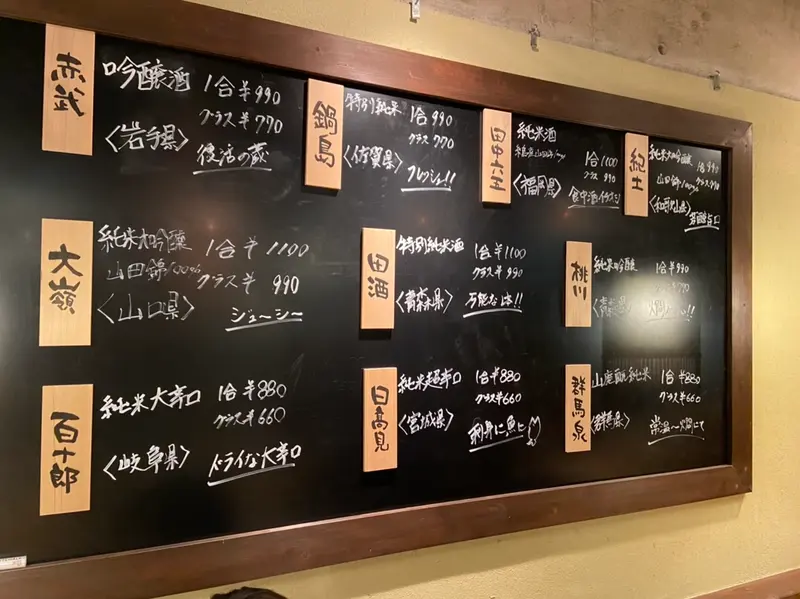 赤武
吟醸酒 1合¥990
グラス¥770
〈岩手県〉 復活の蔵
鍋島
特別純米 1合 990
グラス 770
〈佐賀県〉 フレッシュ!!
田中六五
純米酒
1合 1100
グラス 990
〈福岡県〉 食中酒イチオシ
紀土
純米大吟醸 1合 990
山田錦100% グラス 770
〈和歌山県〉
大嶺
純米大吟醸 1合¥1100
山田錦100% グラス¥990
〈山口県〉 ジューシー
田酒
特別純米酒 1合¥1100
グラス¥990
〈青森県〉 万能な1本!!
桃川
純米吟醸 1合¥990
〈青森県〉
百十郎
純米大辛口 1合¥880
グラス¥660
〈岐阜県〉 ドライな大辛口
日高見
純米超辛口 1合¥880
グラス¥660
〈宮城県〉 刺身に魚に
群馬泉
山廃酛純米 1合¥880
グラス¥660
〈群馬県〉 常温〜燗にて